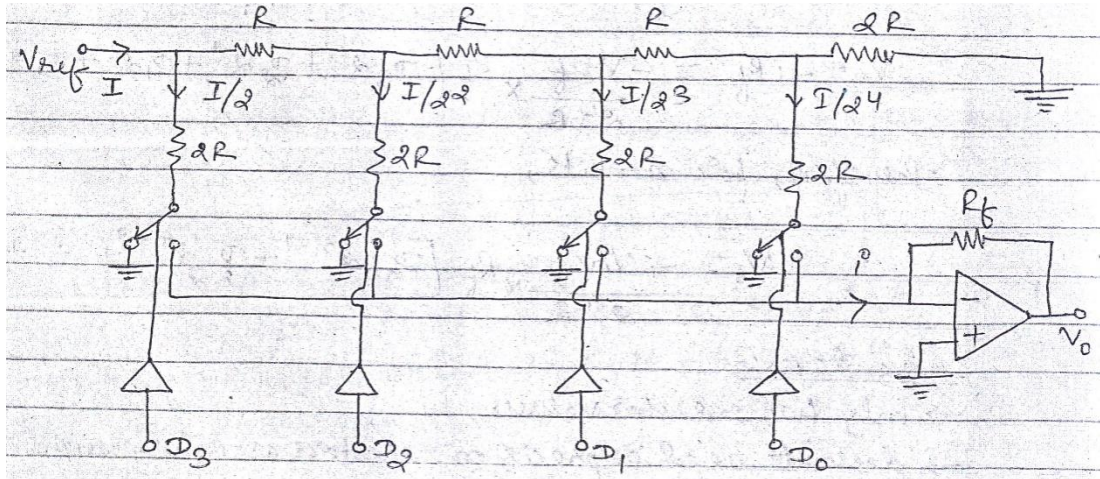 R R R 2R
Vref I I/2 I/2² I/2³ I/2⁴
2R 2R 2R 2R
Rf
i
- 
+
V₀
D₃ D₂ D₁ D₀